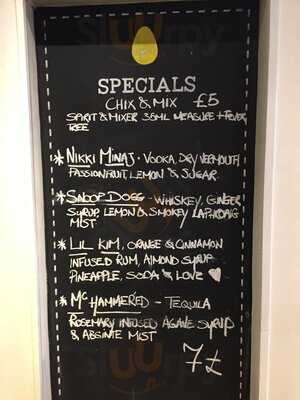 SPECIALS
CHIX & MIX £5
SPIRIT & MIXER 35ML MEASURE + FEVER
TREE
* NIKKI MINAJ - VODKA, DRY VERMOUTH
PASSIONFRUIT, LEMON & SUGAR.
* SNOOP DOGG - WHISKEY, GINGER
SYRUP, LEMON & SMOKEY LAPHROAIG
MIST
* LIL KIM, ORANGE & CINNAMON
INFUSED RUM, ALMOND SYRUP
PINEAPPLE, SODA & LOVE
* MC HAMMERED - TEQUILA
ROSEMARY INFUSED AGAVE SYRUP
& ABSINTE MIST
7£